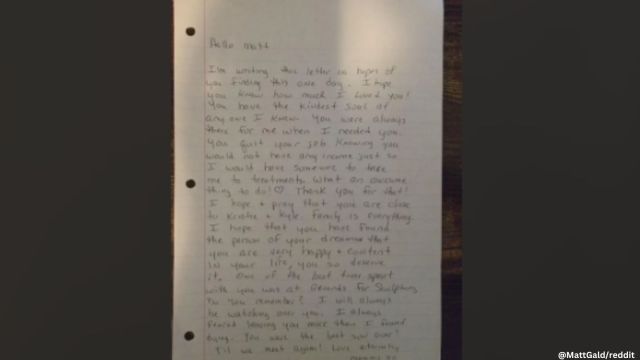 Hello Matt
I'm writing this letter in hopes of
you finding this one day. I hope
you know how much I loved you!
You have the kindest soul of
anyone I knew. You were always
there for me when I needed you.
You quit your job knowing you
would not have any income just so
I would have someone to take
me to treatments. What an awesome
thing to do! ♡ Thank you for that!
I hope + pray that you are close
to + Kyle family is everything.
I hope that you have found
the person of your dreams + that
you are very happy + content
in your life, you so deserve
it. One of the best time spent
with you was at for
Do you remember? I will always
be watching over you. I always
feared leaving you more then I feared
dying. You was the best son ever!
Til we meet again! Love eternally
@MattGald/reddit